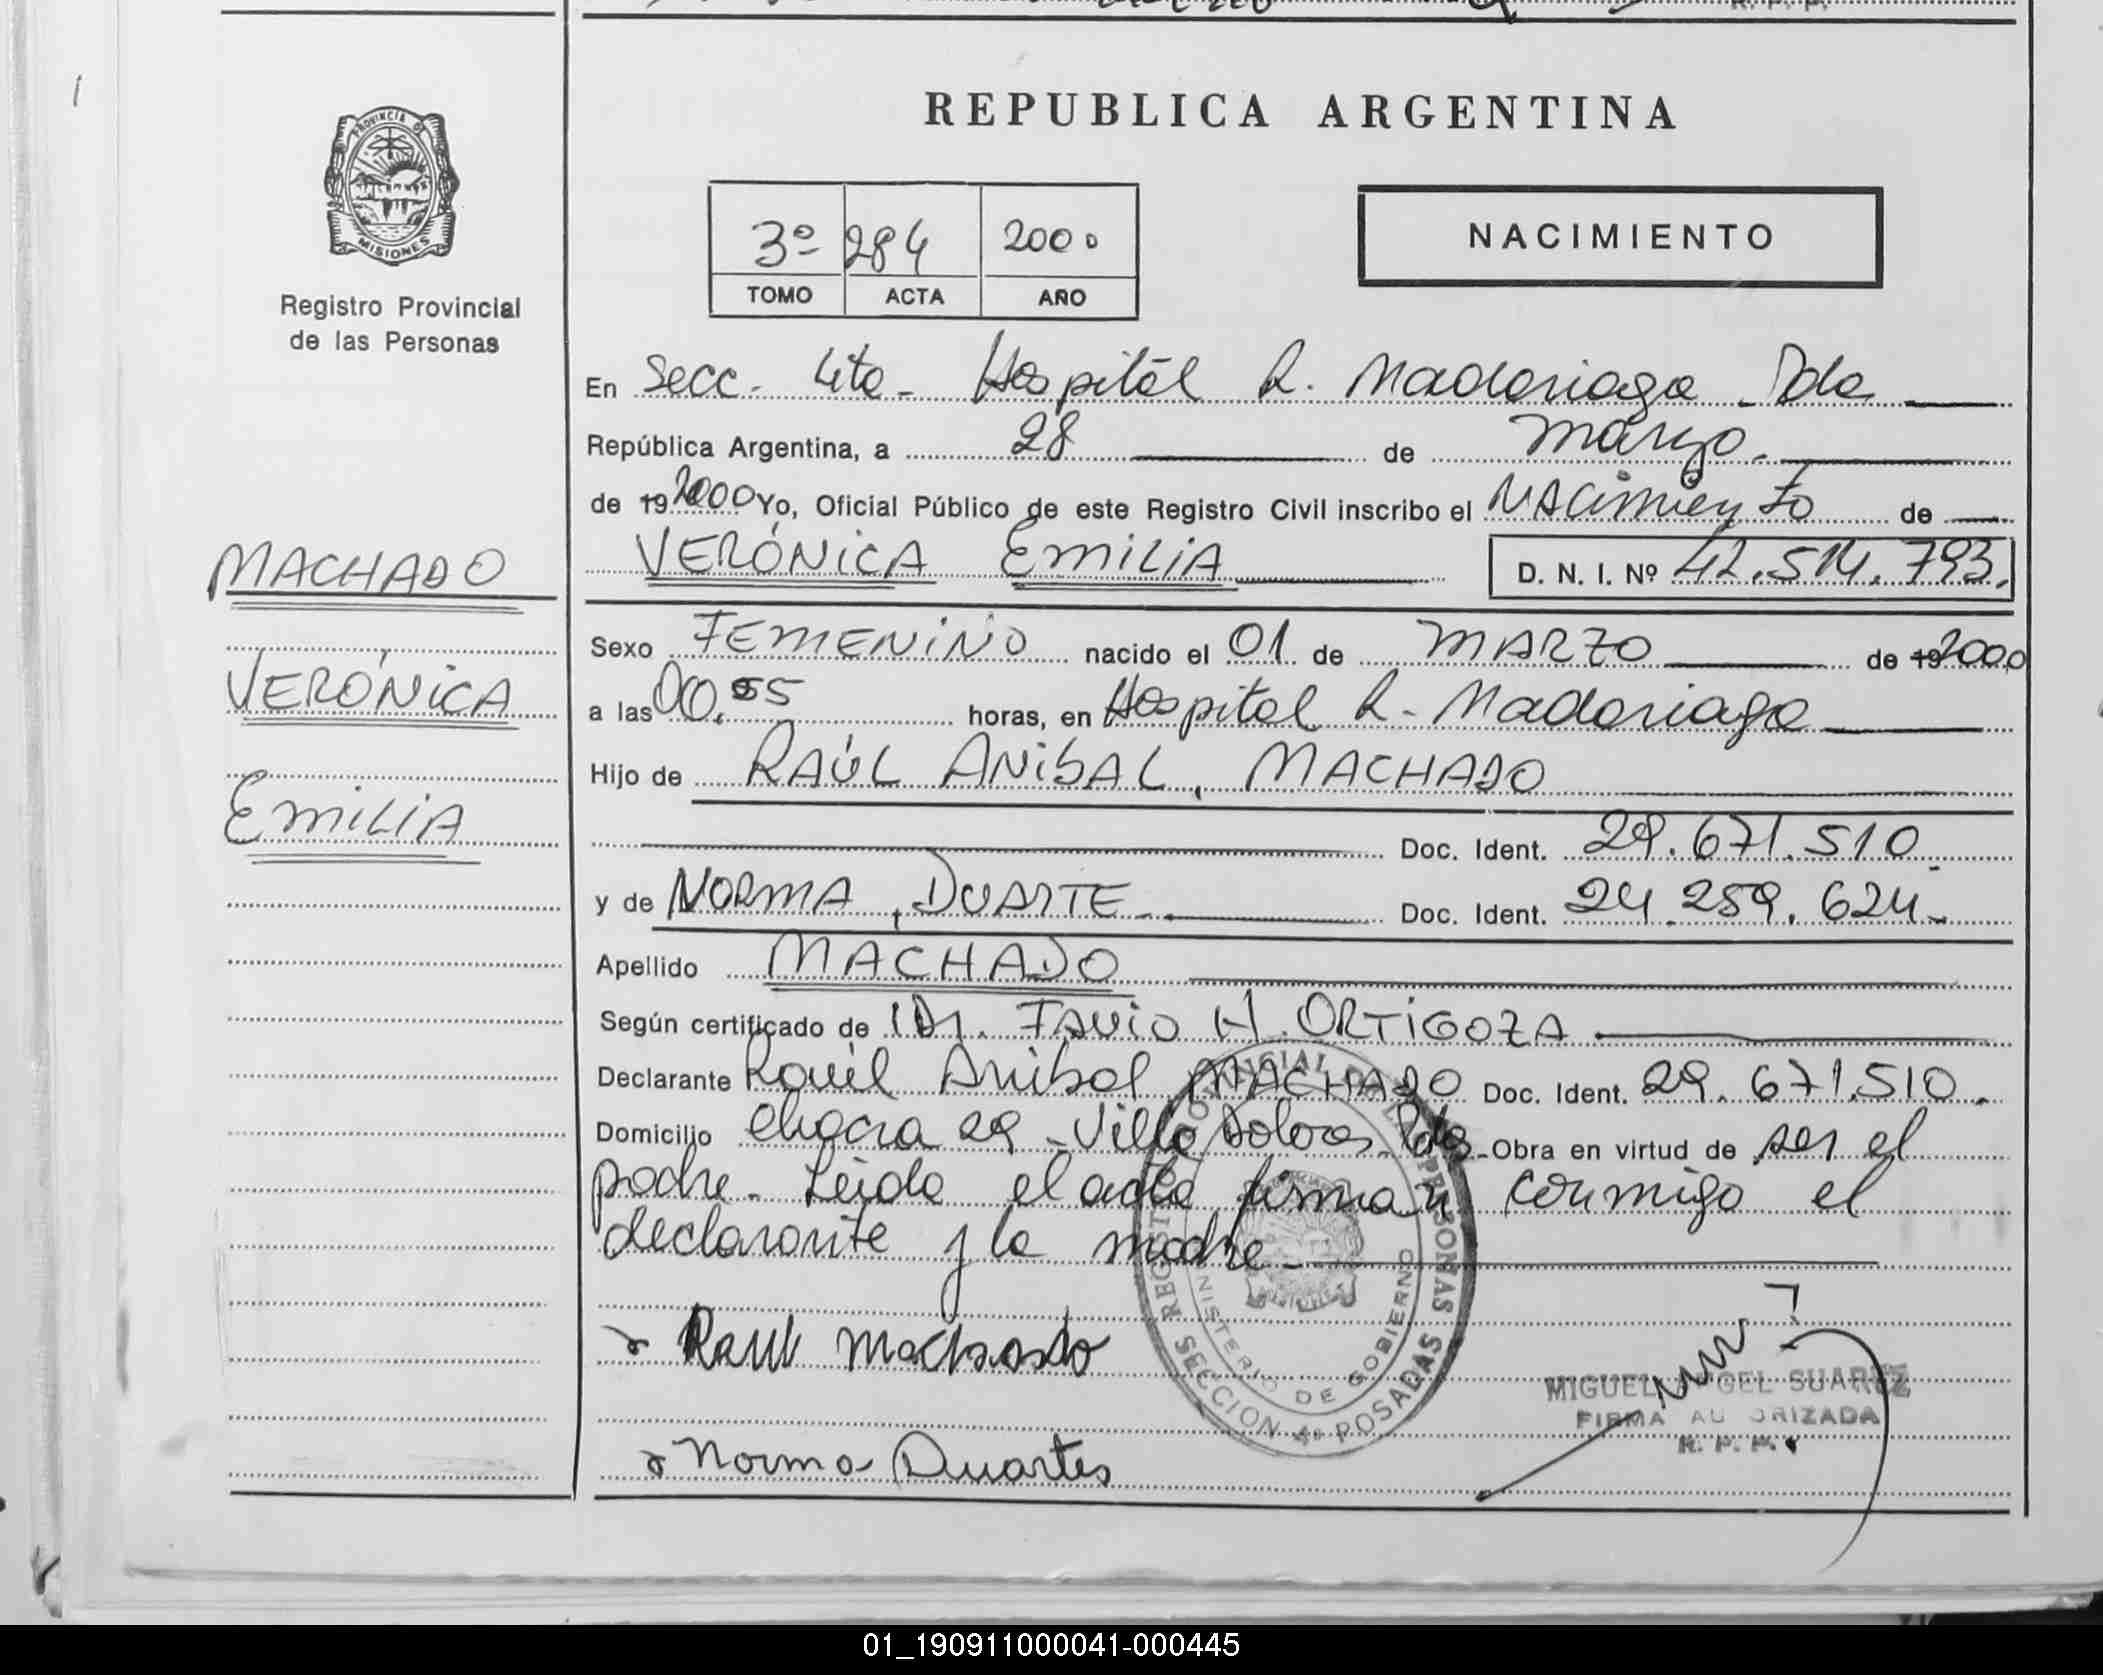 REPUBLICA ARGENTINA
PROVINCIA DE
MISIONES
Registro Provincial
de las Personas
3º 284 2000
TOMO ACTA AÑO
NACIMIENTO
En Secc. 4ta- Hospital R. Madariaga - Pdas
República Argentina, a 28 de marzo.
de 19 2000 Yo, Oficial Público de este Registro Civil inscribo el NACimiento de
VERÓNICA EMILIA D. N. I. Nº 42.514.793.
MACHADO
VERÓNICA
EMILIA
Sexo FEMENINO nacido el 01 de MARZO de 19 2000
a las 00.55 horas, en Hospital R- Madariaga
Hijo de RAÚL ANIBAL, MACHADO
Doc. Ident. 29.671.510.
y de NORMA, DUARTE Doc. Ident. 24.259.624.
Apellido MACHADO
Según certificado de Dr. FAVIO H. ORTIGOZA
Declarante Raúl Anibal MACHADO Doc. Ident. 29.671.510.
Domicilio Chacra 29 - Villa Dolores Pdas - Obra en virtud de ser el
padre. Leida el acta firman conmigo el
declarante y la madre.
REGISTRO PROVINCIAL DE LAS PERSONAS
MINISTERIO DE GOBIERNO
SECCION 4ª POSADAS
Raul Machado
MIGUEL ANGEL SUAREZ
FIRMA AUTORIZADA
R. P. P.
Norma Duartes
01_190911000041-000445